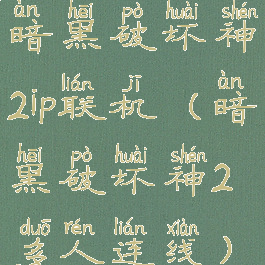 àn hēi pò huài shén
暗黑破坏神
lián jī àn
2ip联机（暗
hēi pò huài shén
黑破坏神2
duō rén lián xiàn
多人连线）